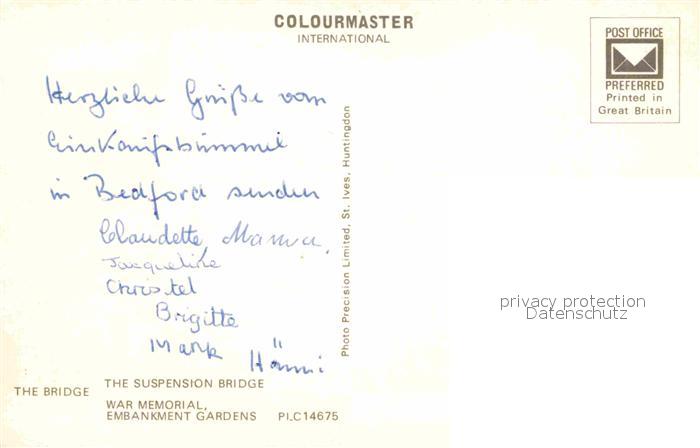 COLOURMASTER
INTERNATIONAL
POST OFFICE
PREFERRED
Printed in
Great Britain
Herzliche Grüße vom
Einkaufsbummel
in Bedford senden
Claudette,
Jacqueline
Christel
Brigitte
Mark Hänni
Photo Precision Limited, St. Ives, Huntingdon
privacy protection
Datenschutz
THE BRIDGE
THE SUSPENSION BRIDGE
WAR MEMORIAL,
EMBANKMENT GARDENS PLC14675